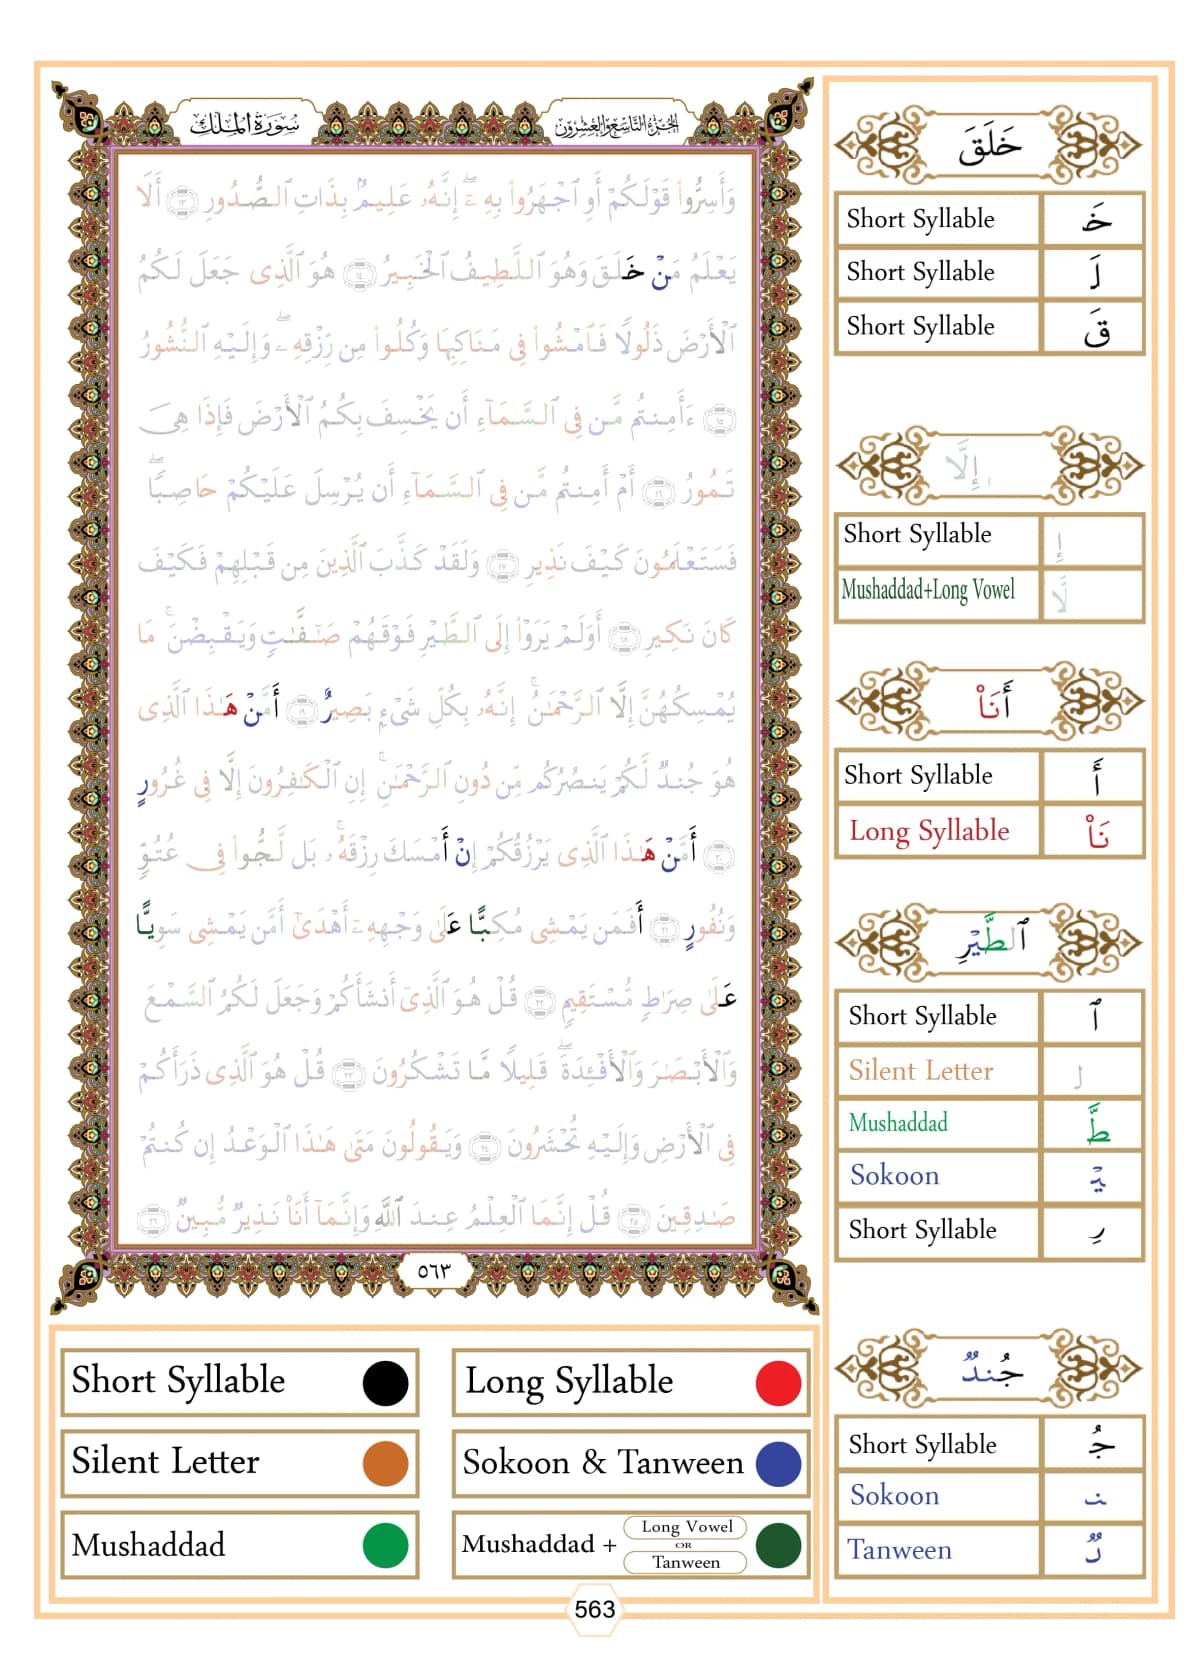 سُورَةُ المُلْكِ
الجُزءُ التَّاسِعُ وَالعِشْرُونَ
وَأَسِرُّوا۟ قَوْلَكُمْ أَوِ ٱجْهَرُوا۟ بِهِۦٓ ۖ إِنَّهُۥ عَلِيمٌۢ بِذَاتِ ٱلصُّدُورِ ١٣ أَلَا
يَعْلَمُ مَنْ خَلَقَ وَهُوَ ٱللَّطِيفُ ٱلْخَبِيرُ ١٤ هُوَ ٱلَّذِى جَعَلَ لَكُمُ
ٱلْأَرْضَ ذَلُولًا فَٱمْشُوا۟ فِى مَنَاكِبِهَا وَكُلُوا۟ مِن رِّزْقِهِۦ ۖ وَإِلَيْهِ ٱلنُّشُورُ
١٥ ءَأَمِنتُم مَّن فِى ٱلسَّمَآءِ أَن يَخْسِفَ بِكُمُ ٱلْأَرْضَ فَإِذَا هِىَ
تَمُورُ ١٦ أَمْ أَمِنتُم مَّن فِى ٱلسَّمَآءِ أَن يُرْسِلَ عَلَيْكُمْ حَاصِبًا ۖ
فَسَتَعْلَمُونَ كَيْفَ نَذِيرِ ١٧ وَلَقَدْ كَذَّبَ ٱلَّذِينَ مِن قَبْلِهِمْ فَكَيْفَ
كَانَ نَكِيرِ ١٨ أَوَلَمْ يَرَوْا۟ إِلَى ٱلطَّيْرِ فَوْقَهُمْ صَٰٓفَّٰتٍ وَيَقْبِضْنَ ۚ مَا
يُمْسِكُهُنَّ إِلَّا ٱلرَّحْمَٰنُ ۚ إِنَّهُۥ بِكُلِّ شَىْءٍۭ بَصِيرٌ ١٩ أَمَّنْ هَٰذَا ٱلَّذِى
هُوَ جُندٌ لَّكُمْ يَنصُرُكُم مِّن دُونِ ٱلرَّحْمَٰنِ ۚ إِنِ ٱلْكَٰفِرُونَ إِلَّا فِى غُرُورٍ
٢٠ أَمَّنْ هَٰذَا ٱلَّذِى يَرْزُقُكُمْ إِنْ أَمْسَكَ رِزْقَهُۥ ۚ بَل لَّجُّوا۟ فِى عُتُوٍّ
وَنُفُورٍ ٢١ أَفَمَن يَمْشِى مُكِبًّا عَلَىٰ وَجْهِهِۦٓ أَهْدَىٰٓ أَمَّن يَمْشِى سَوِيًّا
عَلَىٰ صِرَٰطٍ مُّسْتَقِيمٍ ٢٢ قُلْ هُوَ ٱلَّذِىٓ أَنشَأَكُمْ وَجَعَلَ لَكُمُ ٱلسَّمْعَ
وَٱلْأَبْصَٰرَ وَٱلْأَفْـِٔدَةَ ۖ قَلِيلًا مَّا تَشْكُرُونَ ٢٣ قُلْ هُوَ ٱلَّذِى ذَرَأَكُمْ
فِى ٱلْأَرْضِ وَإِلَيْهِ تُحْشَرُونَ ٢٤ وَيَقُولُونَ مَتَىٰ هَٰذَا ٱلْوَعْدُ إِن كُنتُمْ
صَٰدِقِينَ ٢٥ قُلْ إِنَّمَا ٱلْعِلْمُ عِندَ ٱللَّهِ وَإِنَّمَآ أَنَا۠ نَذِيرٌ مُّبِينٌ ٢٦
٥٦٣
خَلَقَ
Short Syllable خَ
Short Syllable لَ
Short Syllable قَ
إِلَّا
Short Syllable إِ
Mushaddad+Long Vowel لَّا
أَنَا۠
Short Syllable أَ
Long Syllable نَا۠
ٱلطَّيْرِ
Short Syllable ٱ
Silent Letter ل
Mushaddad طَّ
Sokoon يْ
Short Syllable رِ
جُندٌ
Short Syllable جُ
Sokoon ن
Tanween دٌ
Short Syllable
Long Syllable
Silent Letter
Sokoon & Tanween
Mushaddad
Mushaddad + Long Vowel OR Tanween
563